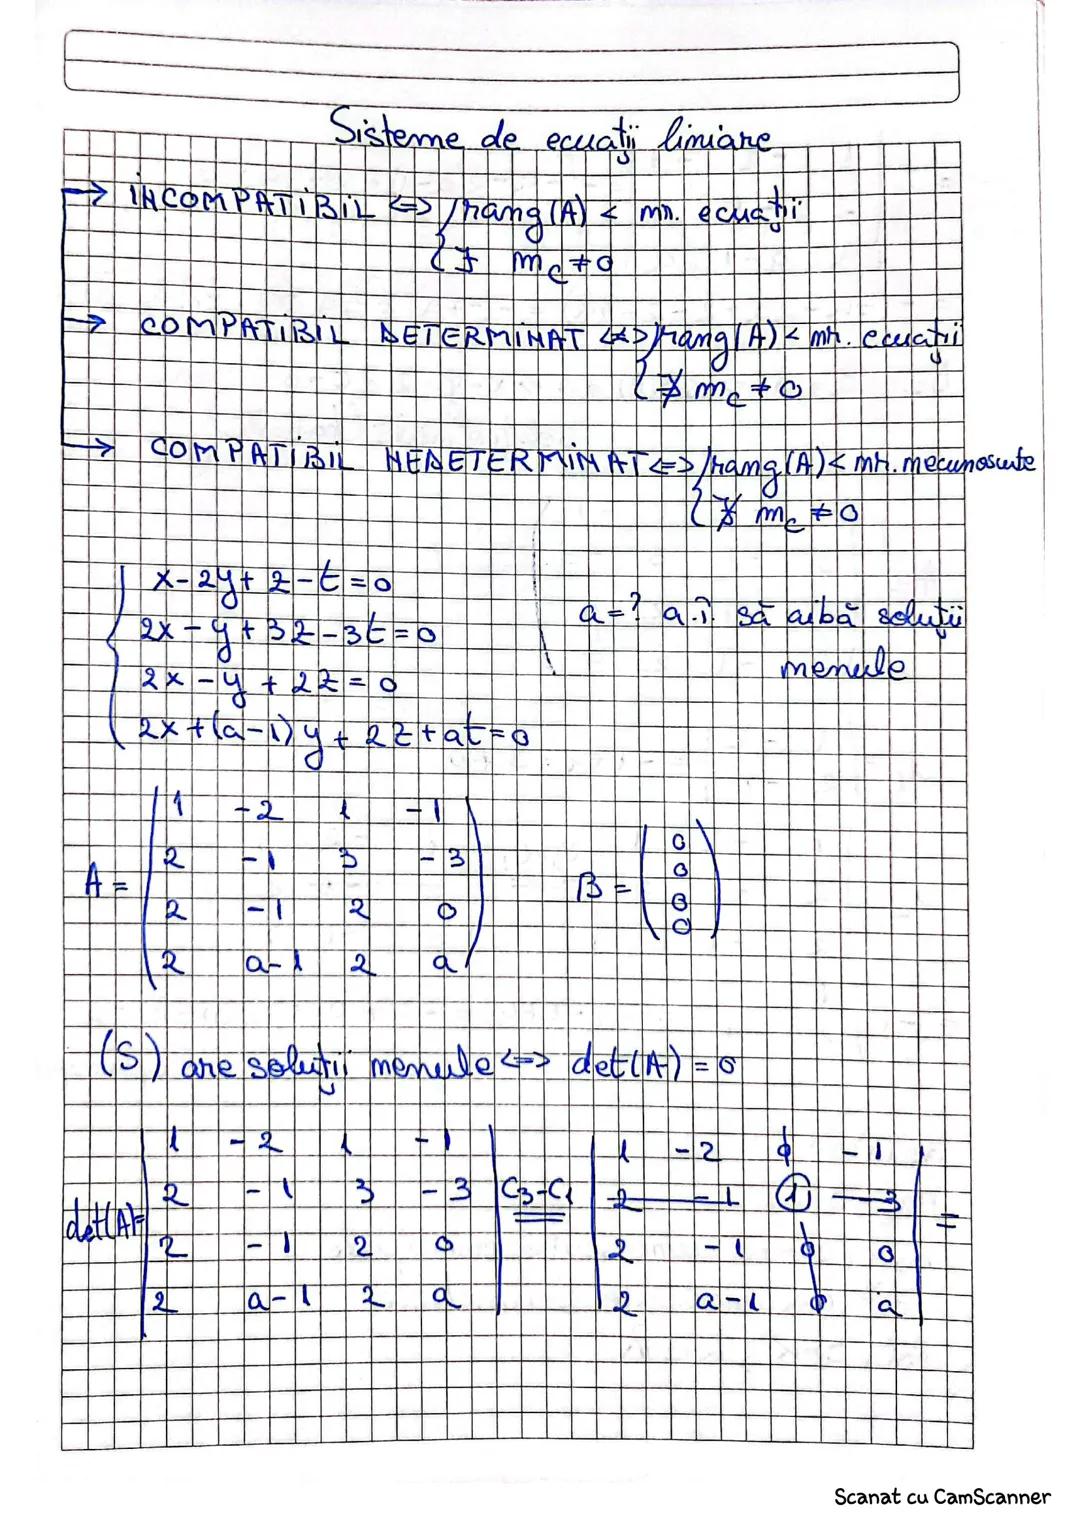 Sisteme de ecuații liniare
→ INCOMPATIBIL <=> { rang(A) < nr. ecuații
∃ mc ≠ 0
→ COMPATIBIL DETERMINAT <=> { rang(A) < nr. ecuații
∄ mc ≠ 0
→ COMPATIBIL NEDETERMINAT <=> { rang(A) < nr. necunoscute
∄ mc ≠ 0
x - 2y + z - t = 0
2x - y + 3z - 3t = 0
a = ? a.î. să aibă soluții
2x - y + 2z = 0
nenule
2x + (a-1)y + 2z + at = 0
1 -2 1 -1
2 -1 3 -3
A =
2 -1 2 0
2 a-1 2 a
B =
0
0
0
0
(S) are soluții nenule <=> det(A) = 0
1 -2 1 -1 | 1 -2 0 -1
det(A) = 2 -1 3 -3 | C3-C1 | 2 -1 1 -3 | =
2 -1 2 0 | 2 -1 0 0
2 a-1 2 a | 2 a-1 0 a
Scanat cu CamScanner